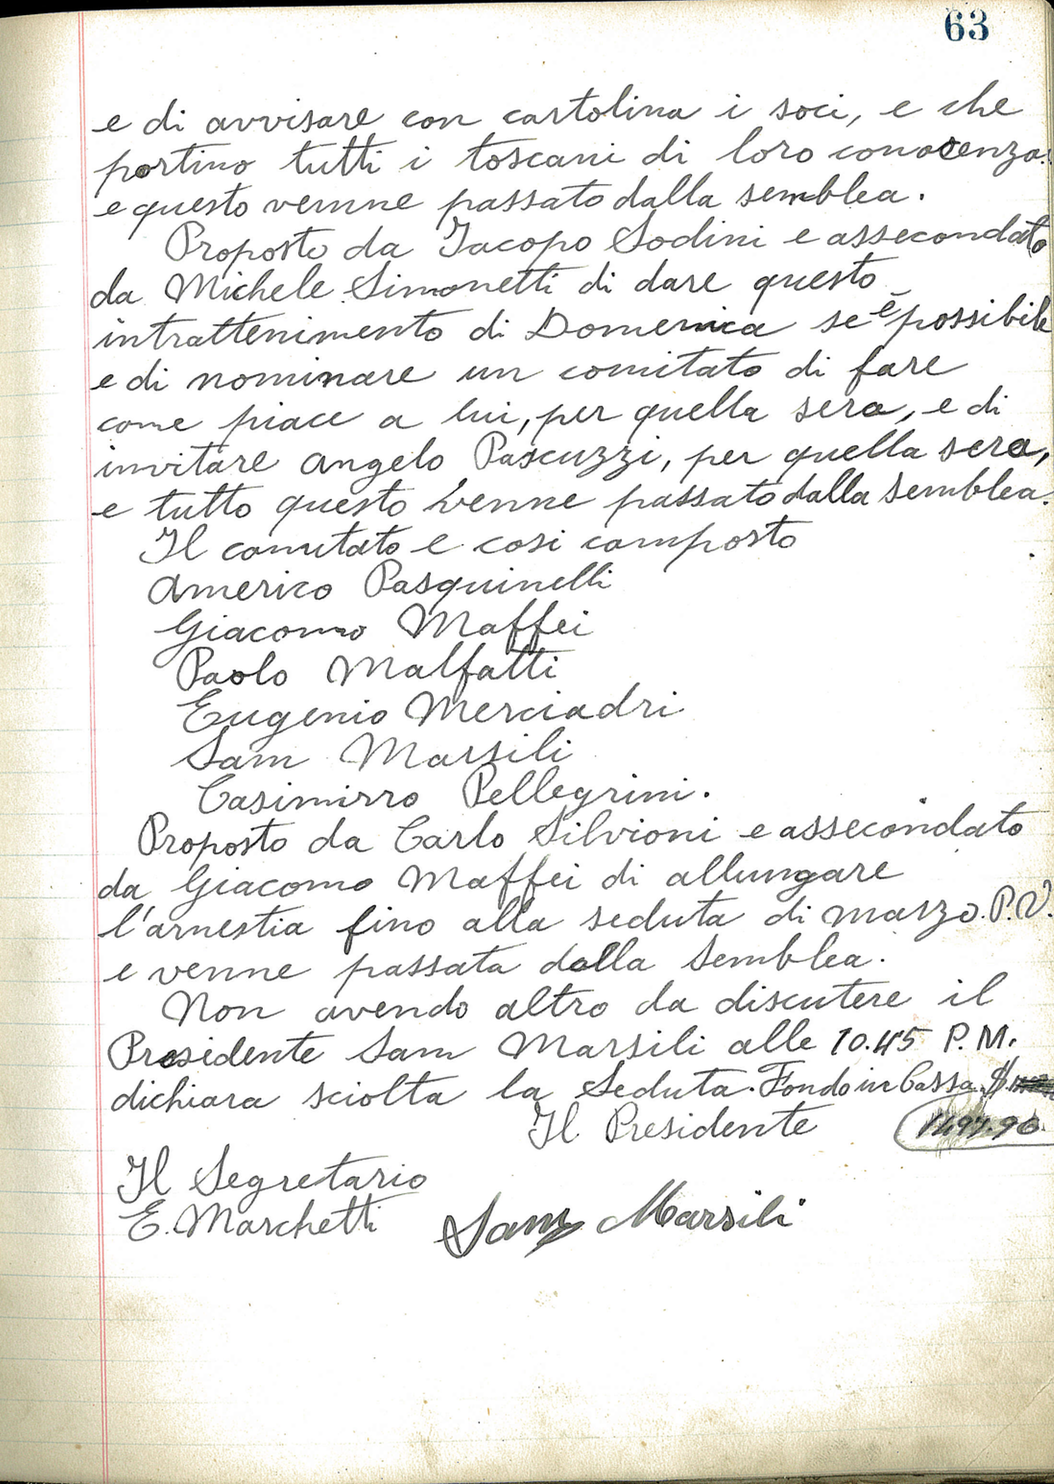 63
e di avvisare con cartolina i soci, e che
portino tutti i toscani di loro conocenza.
e questo vennne passato dalla semblea.
Proposto da Iacopo Sodini e assecondato
da Michele Simonetti di dare questo
intrattenimento di Domenica se è possibile
e di nominare un comitato di fare
come piace a lui, per quella sera, e di
invitare Angelo Pascuzzi, per quella sera,
e tutto questo venne passato dalla Semblea.
Il comitato e cosi composto
Americo Pasquinelli
Giacomo Maffei
Paolo Malfatti
Eugenio Merciadri
Sam Marsili
Casimirro Pellegrini.
Proposto da Carlo Silvioni e assecondato
da Giacomo Maffei di allungare
l'arnestia fino alla seduta di marzo. P.V.
e venne passata dalla Semblea.
Non avendo altro da discutere il
Presidente Sam Marsili alle 10.45 P.M.
dichiara sciolta la Seduta. Fondo in Cassa $
Il Presidente
Il Segretario
E. Marchetti Sam Marsili